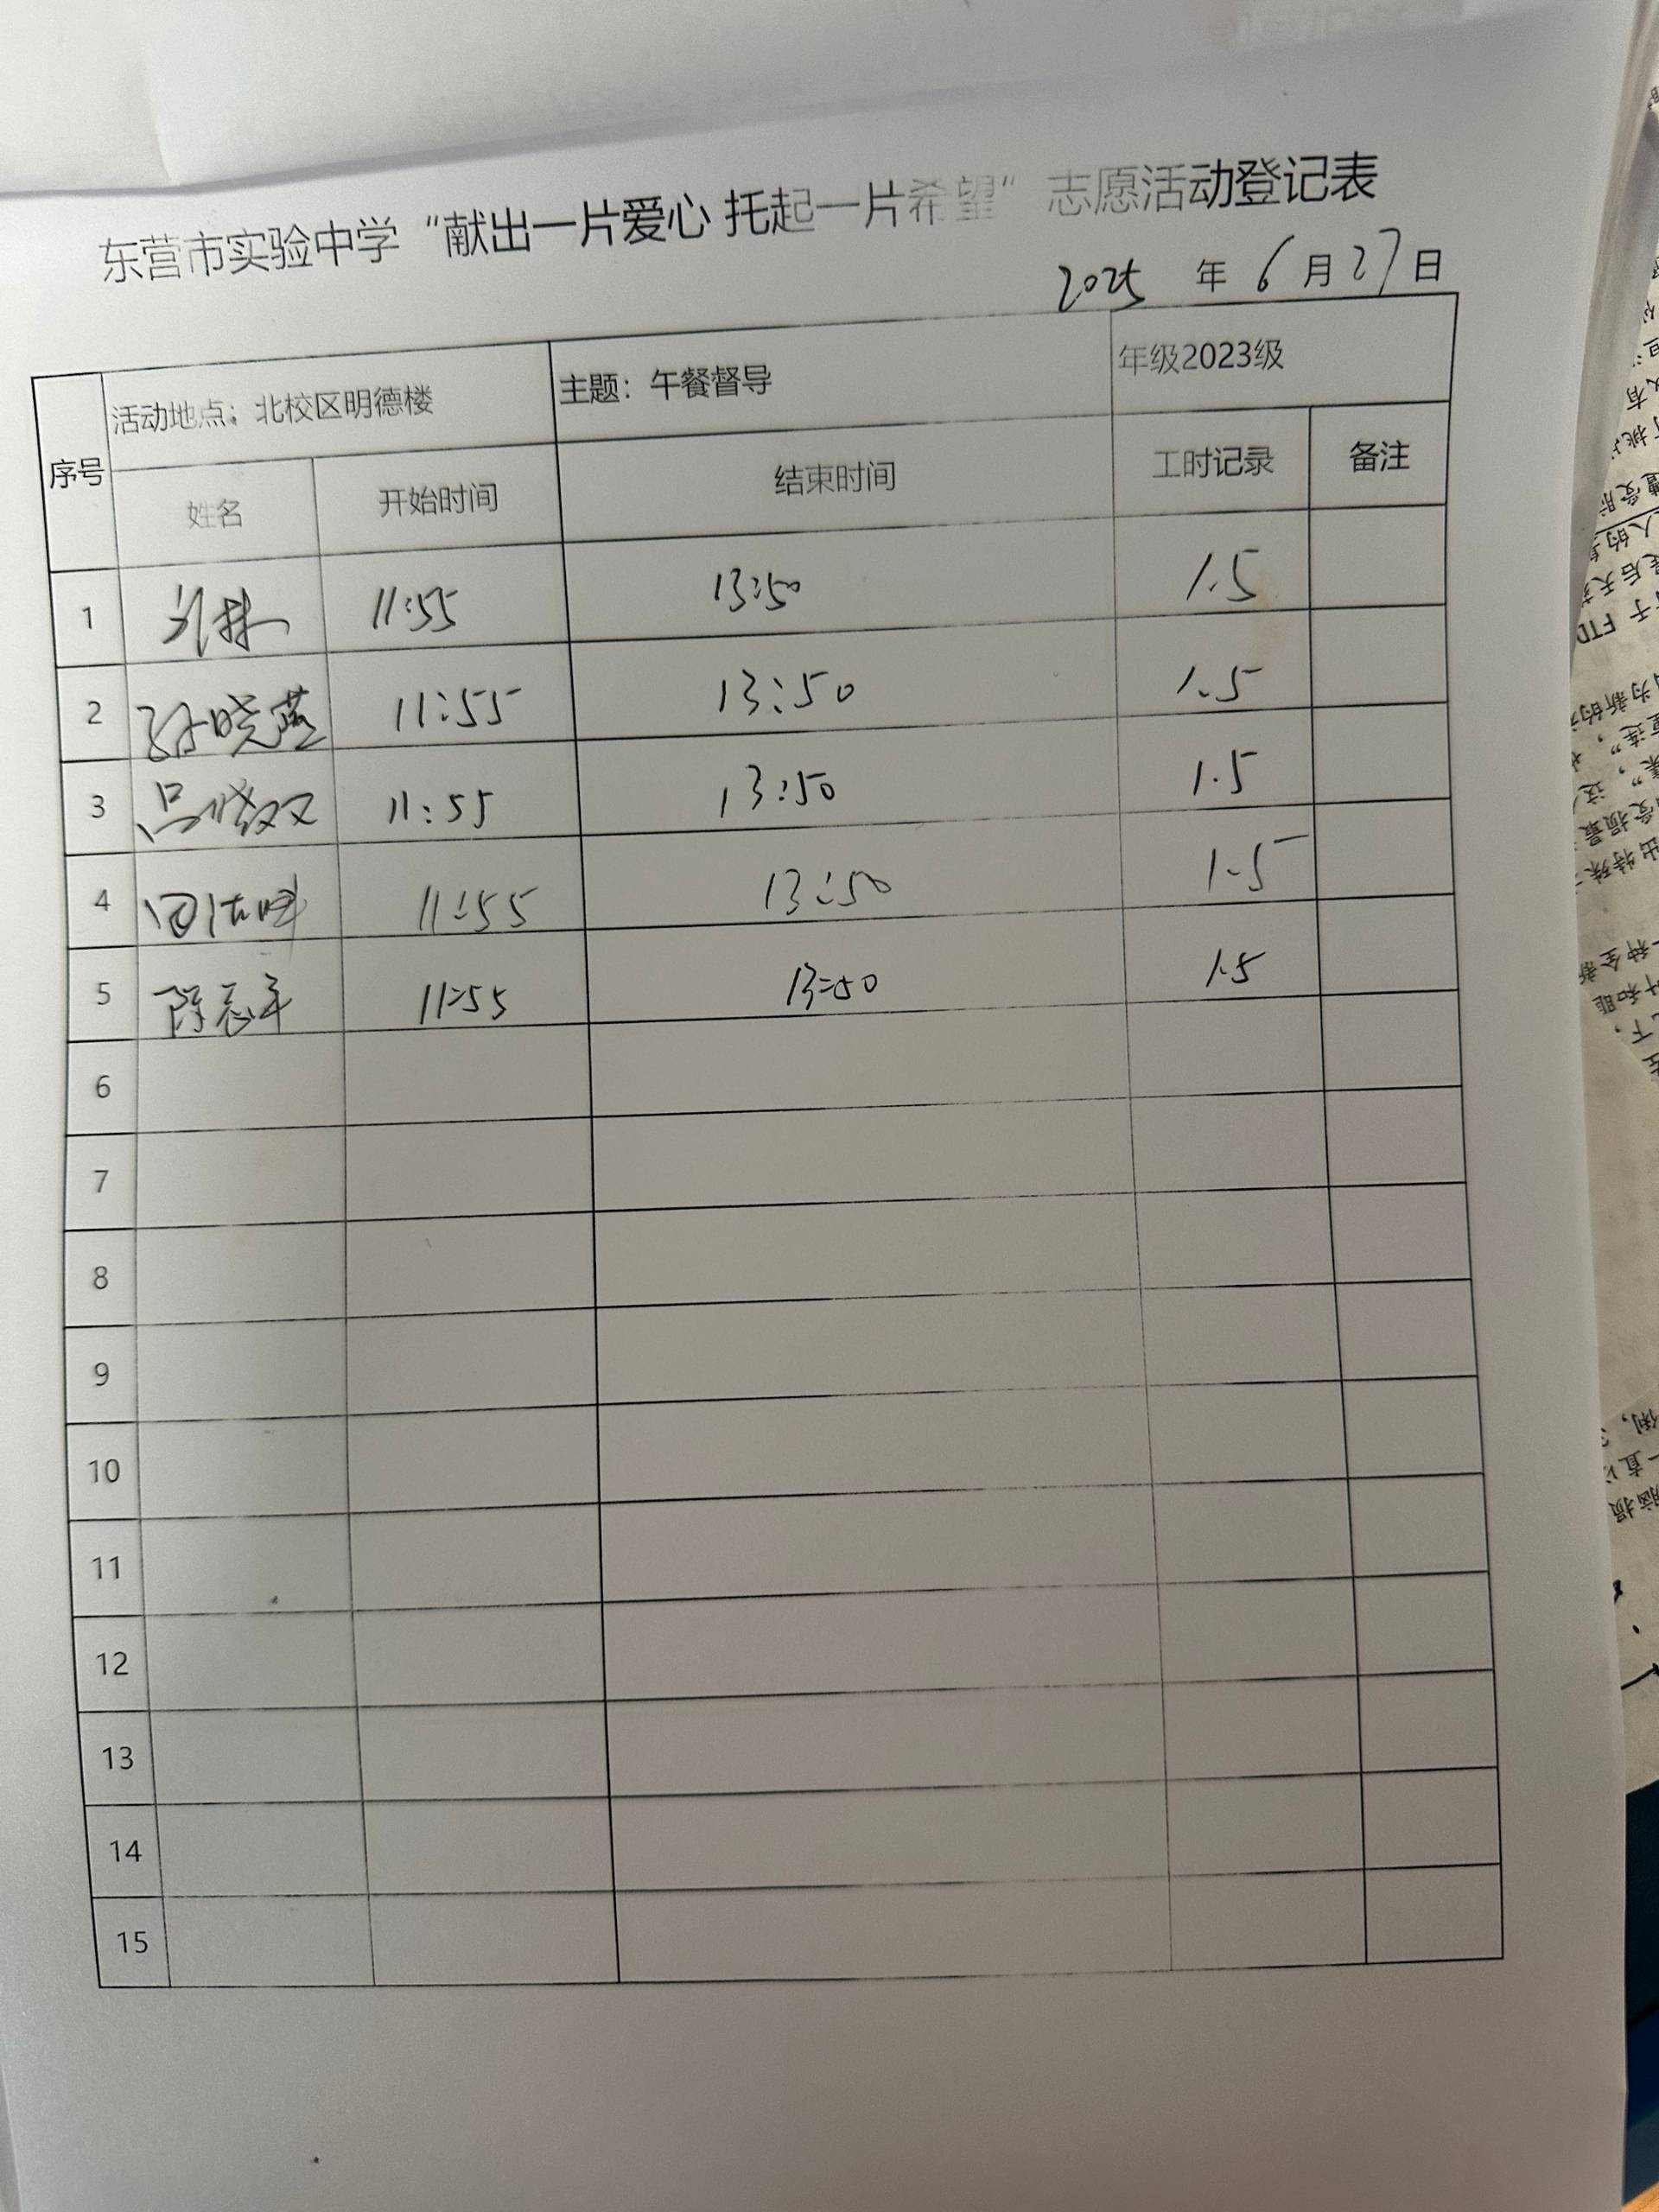 东营市实验中学“献出一片爱心 托起一片希望”志愿活动登记表
2025 年 6 月 27 日
序号 活动地点：北校区明德楼 主题：午餐督导 年级2023级
姓名 开始时间 结束时间 工时记录 备注
1 11:55 13:50 1.5
2 孙晓燕 11:55 13:50 1.5
3 11:55 13:50 1.5
4 11:55 13:50 1.5
5 11:55 13:50 1.5
6
7
8
9
10
11
12
13
14
15